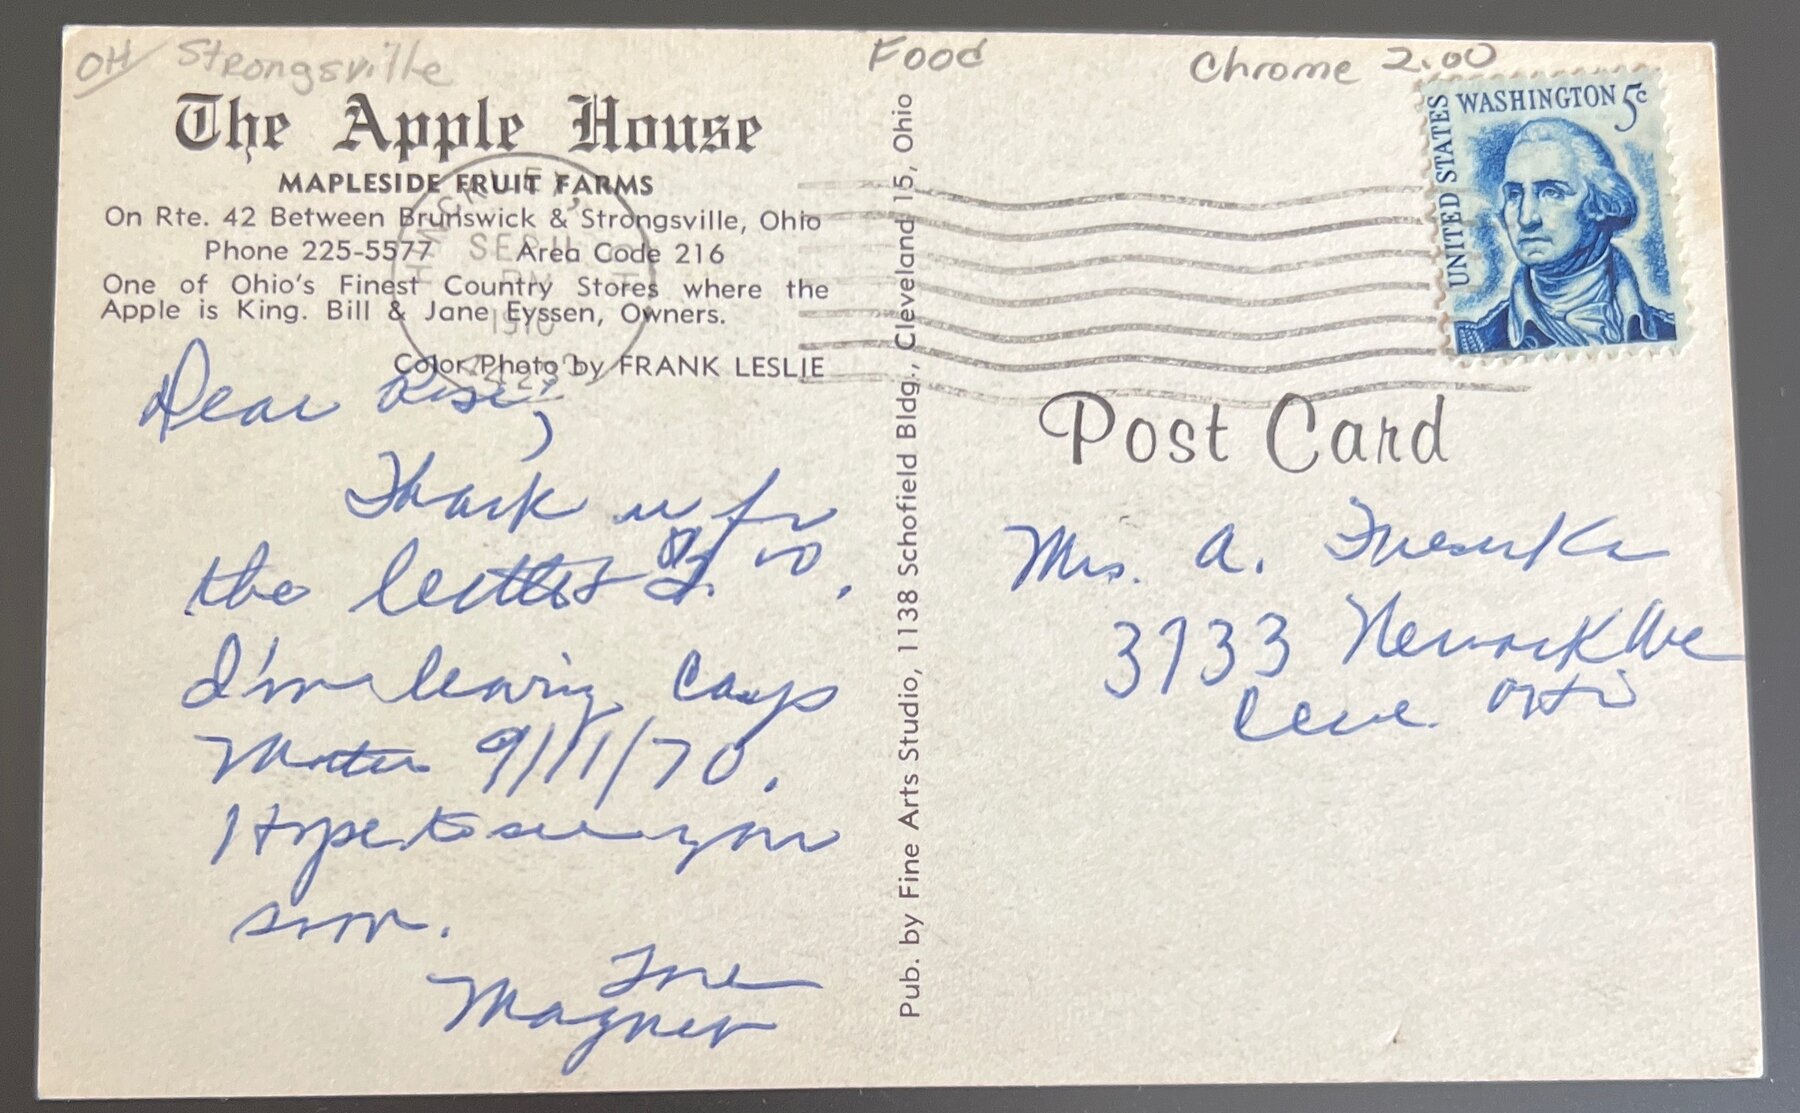 OH Strongsville
Food
Chrome 2.00
The Apple House
MAPLESIDE FRUIT FARMS
On Rte. 42 Between Brunswick & Strongsville, Ohio
Phone 225-5577 Area Code 216
One of Ohio's Finest Country Stores where the
Apple is King. Bill & Jane Eyssen, Owners.
Color Photo by FRANK LESLIE
Dear Rose,
Thank u for
the letter &
I'm leaving Camp
9/11/70.
Hope to see you
soon.
Magner
Pub. by Fine Arts Studio, 1138 Schofield Bldg., Cleveland 15, Ohio
SEP 11
PM
1970
UNITED STATES
WASHINGTON 5c
Post Card
Mrs. A.
3733 Newark Ave
Cleve. Ohio